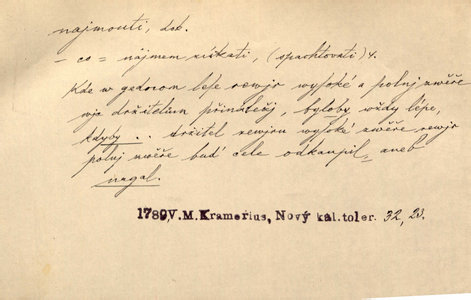 najmouti, dok.
— co = nájmem získati, (spachtovati) 4.
Kde w gednom lese rewjr wysoké a polnj zwěře
wjc držitelům přináležj, byloby wždy lépe,
kdyby . . držitel rewjru wysoké zwěře rewjr
polnj zwěře buď cele odkaupil, aneb
nagal.
1780, V. M. Kramerius, Nový kal. toler. 32, 23.